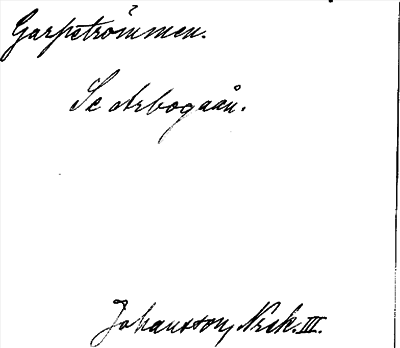 Garpströmmen.
Se Arbogaån.
Johansson, Nsk. III.